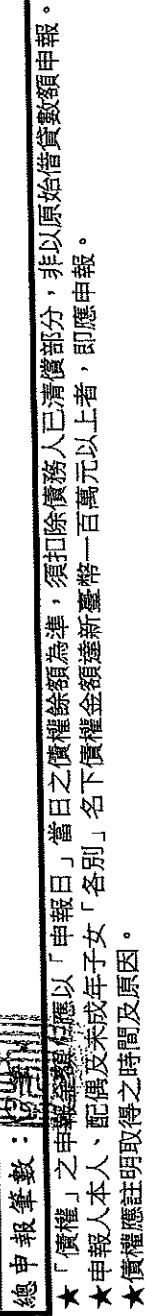 總申報筆數：
★「債權」之申報金額應以「申報日」當日之債權餘額為準，須扣除債務人已清償部分，非以原始借貸數額申報。
★申報人本人、配偶及未成年子女「各別」名下債權金額達新臺幣一百萬元以上者，即應申報。
★債權應註明取得之時間及原因。